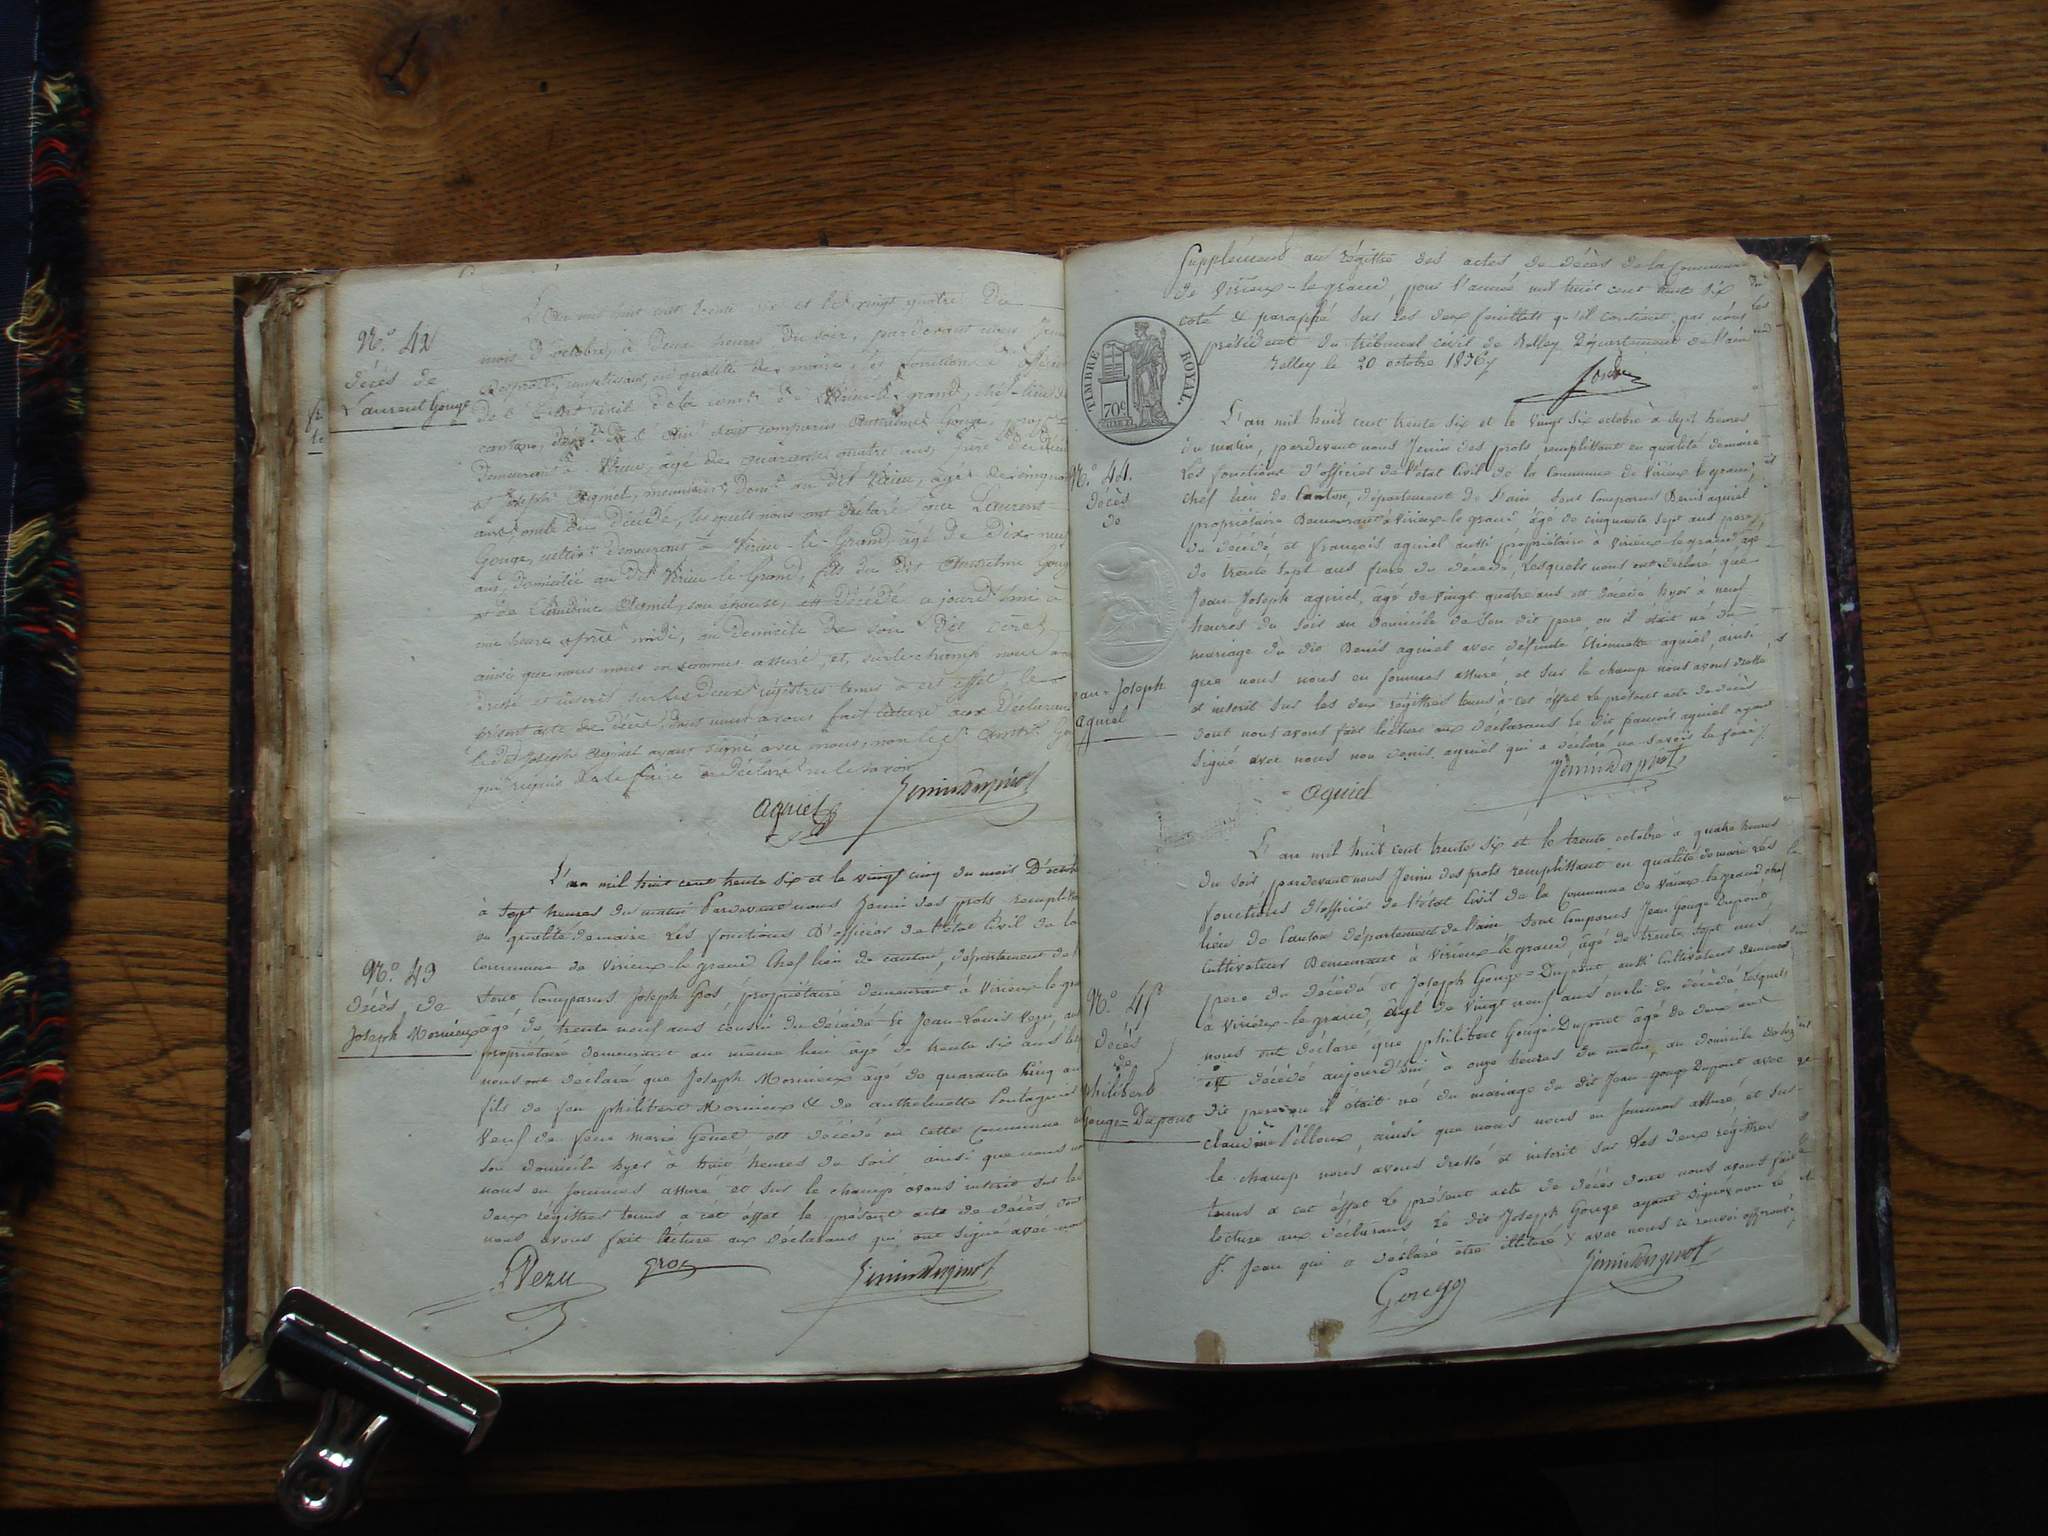 L'an mil huit cent trente six et le vingt quatre du
N.º 42
décès de
Laurent Gouge
mois d'octobre, à deux heures du soir, pardevant nous Jenin
Desprots, remplissant en qualité de maire, les fonctions d'officier
de l'Etat civil de la com.e de Virieu-le-grand, chef-lieu de
canton, dép.t de l'Ain sont comparus Anthelme Gouge,
demeurant à Virieu, âgé de quarante quatre ans, père du décédé
et Joseph Aguiel, meunier, dom.é au dit Virieu, âgé de cinquante
ans, oncle du décédé, lesquels nous ont déclaré que Laurent
Gouge, demeurant à Virieu-le-Grand, âgé de dix neuf
ans, domicilié au dit Virieu-le-Grand, fils du dit Anthelme Gouge
et de Claudine Aguiel, son épouse, est décédé aujourd'hui à
une heure après midi, au domicile de son dit père,
ainsi que nous nous en sommes assuré, et, sur le champ nous avons
dressé et inscrit sur les deux régistres tenus à cet effet, le
présent acte de décès, dont nous avons fait lecture aux déclarans
le dit Joseph Aguiel ayant signé avec nous, non le s.r Anth.e Gouge
qui requis de le faire a déclaré ne le savoir
Aguiel Jenin Desprots
L'an mil huit cent trente six et le vingt cinq du mois D'octobre
à sept heures du matin Pardevant nous Jenin des prots remplissant
en qualité de maire Les fonctions D'officier de l'état Civil de la
commune de virieux-le grand Chef lieu de canton, département de
N.º 43
décès de
Joseph Mornieux
sont Comparus Joseph Gros, propriétaire demeurant à virieux-le gra
âgé de trente neuf ans cousin du décédé et Jean-Louis Vezu, au
propriétaire demeurant au même lieu âgé de trente six ans les
nous ont déclaré que Joseph Mornieux âgé de quarante cinq an
fils de feu philibert Mornieux & de anthelmette
veuf de feue marie Genet est décédé en cette commune en
son domicile hyer à huit heures du soir ainsi que nous no
nous en sommes assuré et sur le champ avons inscrit sur les
deux régistres tenus à cet effet le présent acte de décès dont
nous avons fait lecture aux déclarans qui ont signé avec nous
Vezu gros Jenin Desprots
Supplément au régistre des actes de décès de la Commune
de Virieux-le-grand, pour l'année mil huit cent trente six
coté & paraphé sur les deux feuillets qu'il contient, par nous
président du tribunal civil de Belley Département de l'ain
Belley le 20 octobre 1836
TIMBRE ROYAL.
70c
L'an mil huit cent trente six et le vingt six octobre à sept heures
du matin, pardevant nous Jenin des prots remplissant en qualité de maire
Les fonctions d'officier de l'état Civil de la commune de Virieux le grand,
N.º 44.
décès
de
chef lieu de Canton, département de l'ain sont Comparus Denis aguiel
propriétaire Demeurant à virieux-le grand, âgé de cinquante sept ans pere
du décédé et françois aguiel aussi propriétaire à virieux-le grand âgé
de trente sept ans frere du décédé, Lesquels nous ont déclaré que
Jean Joseph aguiel, âgé de vingt quatre ans est décédé hyer à neuf
heures du soir au domicile de son dit pere, ou il était né du
mariage du dit Denis aguiel avec défunte Etiennette aguiel, ainsi
que nous nous en sommes assuré, et sur le champ nous avons dressé
ean-Joseph
aguiel
et inscrit sur les deux régistres tenus à cet effet le présent acte de décès
dont nous avons fait lecture aux déclarans Le dit françois aguiel ayant
signé avec nous non denis aguiel qui a déclaré ne savoir le faire
Jenin Desprots
Aguiel
L'an mil huit cent trente six et le trente octobre à quatre heures
du soir, pardevant nous Jenin des prots remplissant en qualité de maire Les
fonctions d'officier de l'état Civil de la Commune de Virieux-le-grand chef
lieu de Canton département de l'ain sont Comparus Jean Gouge Dupont,
cultivateur Demeurant à virieux-le-grand âgé de trente sept ans,
pere du décédé et Joseph Gouge=Dupont aussi Cultivateur demeurant
à Virieux-le grand, âgé de vingt neuf ans oncle du décédé lesquels
N.º 45
décès
de
philibert
Gouge=Dupont
nous ont déclaré que philibert Gouge-Dupont âgé de deux ans
est décédé aujourd'hui à onze heures du matin, au domicile de
dit pere ou il était né du mariage du dit Jean-gouge Dupont avec
claudine Pelloux, ainsi que nous nous en sommes assuré et sur
le champ nous avons dressé et inscrit sur Les deux régistres
tenus a cet effet Le présent acte de décès dont nous avons fait
lecture aux déclarans Le dit Joseph Gouge ayant signé non Le
S.r Jean qui a déclaré être illitéré x avec nous ce renvoi approuvé
Gouge Jenin Desprots